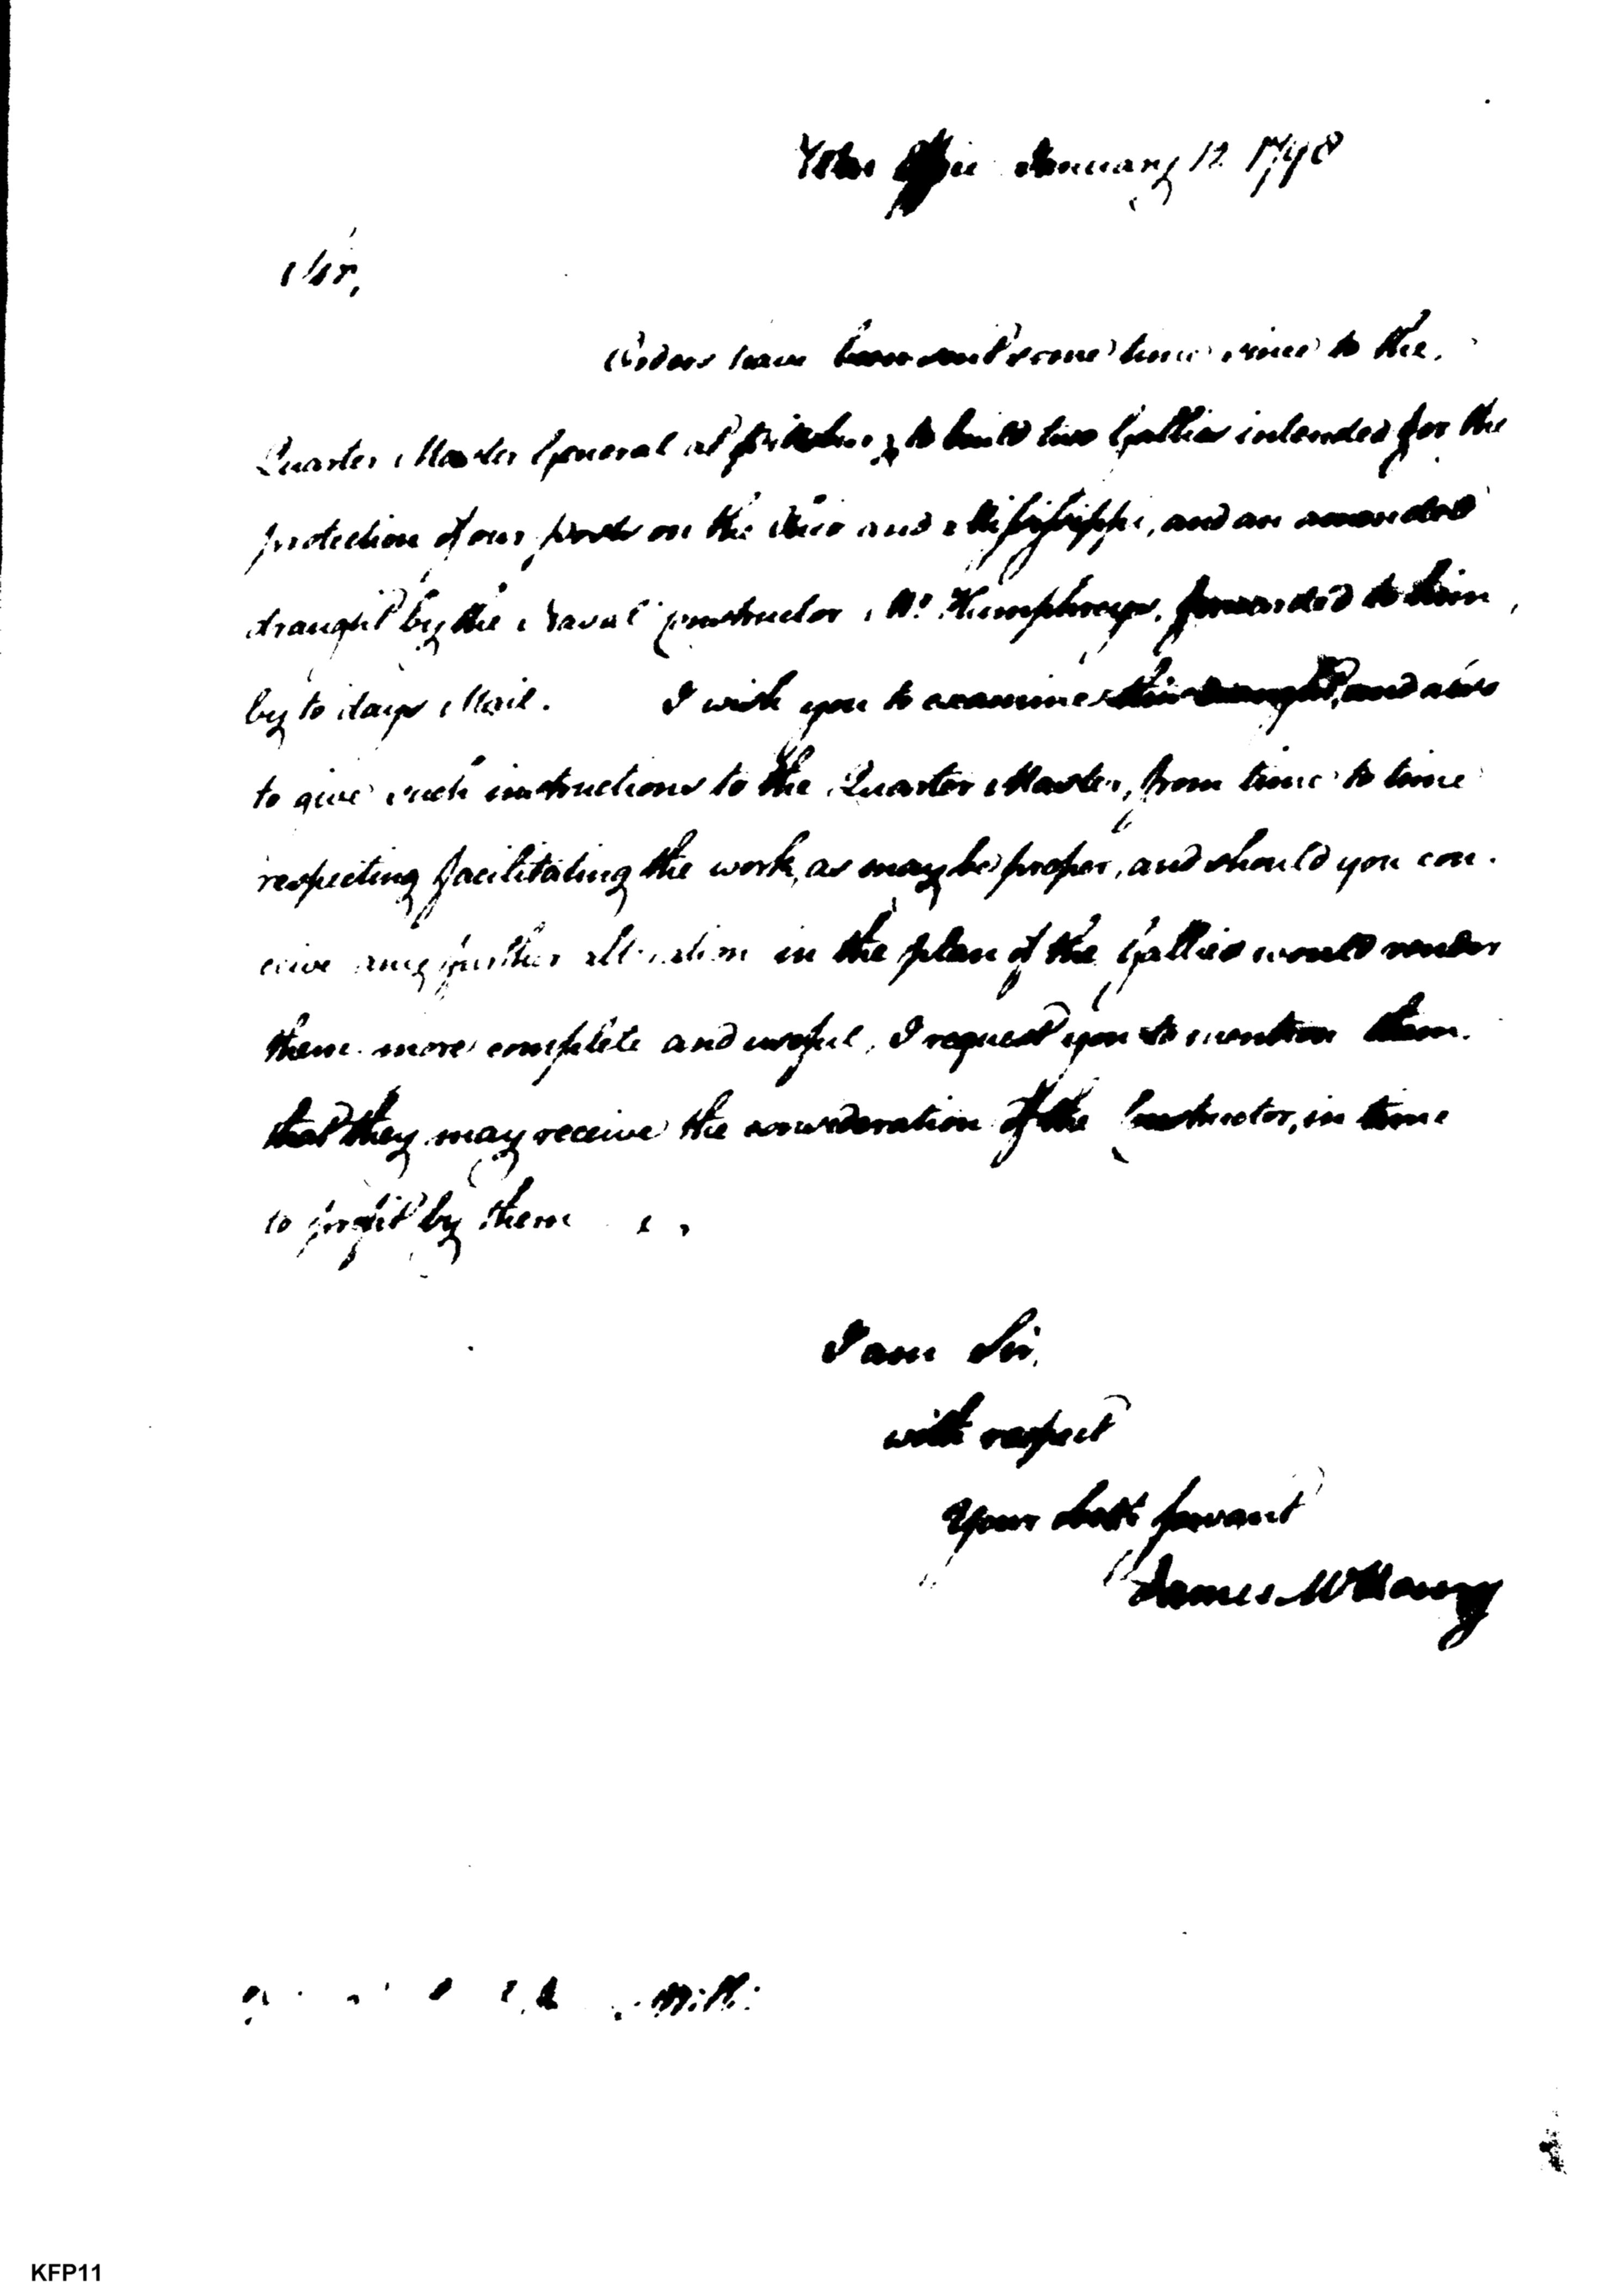 War Office January 12 1798
Sir,
Orders have been sent some time since to the
Quarter Master General at Pittsburg to build two Gallies intended for the
protection of our posts on the Ohio and Mississippi, and an amended
draught by the Naval Constructor Mr Humphreys, forwarded to him
by to days Mail. I wish you to examine this draught, and also
to give such instructions to the Quarter Master, from time to time
respecting facilitating the work, as may be proper, and should you con-
ceive any further alteration in the plan of the Gallies would render
them more complete and useful, I request you to mention them
that they may receive the consideration of the Constructor, in time
to profit by them
I am Sir,
with respect
Your obdt servant
James McHenry
KFP11